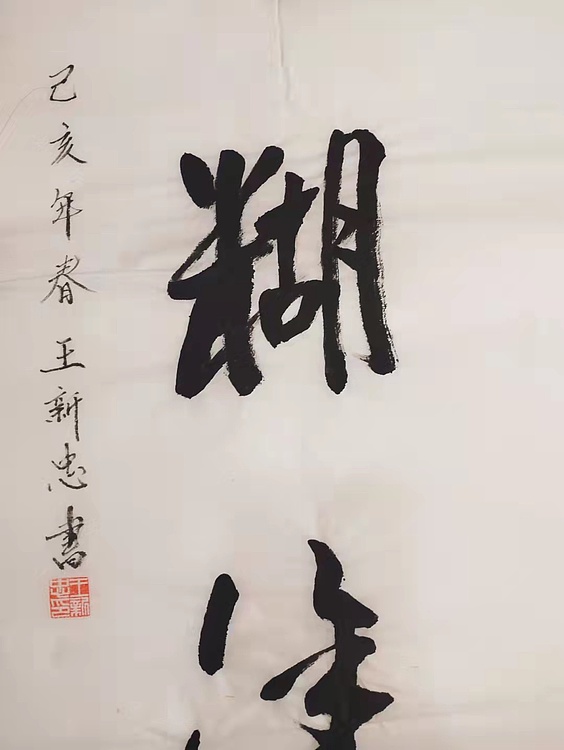 糊涂
己亥年春王新忠書
王新忠印